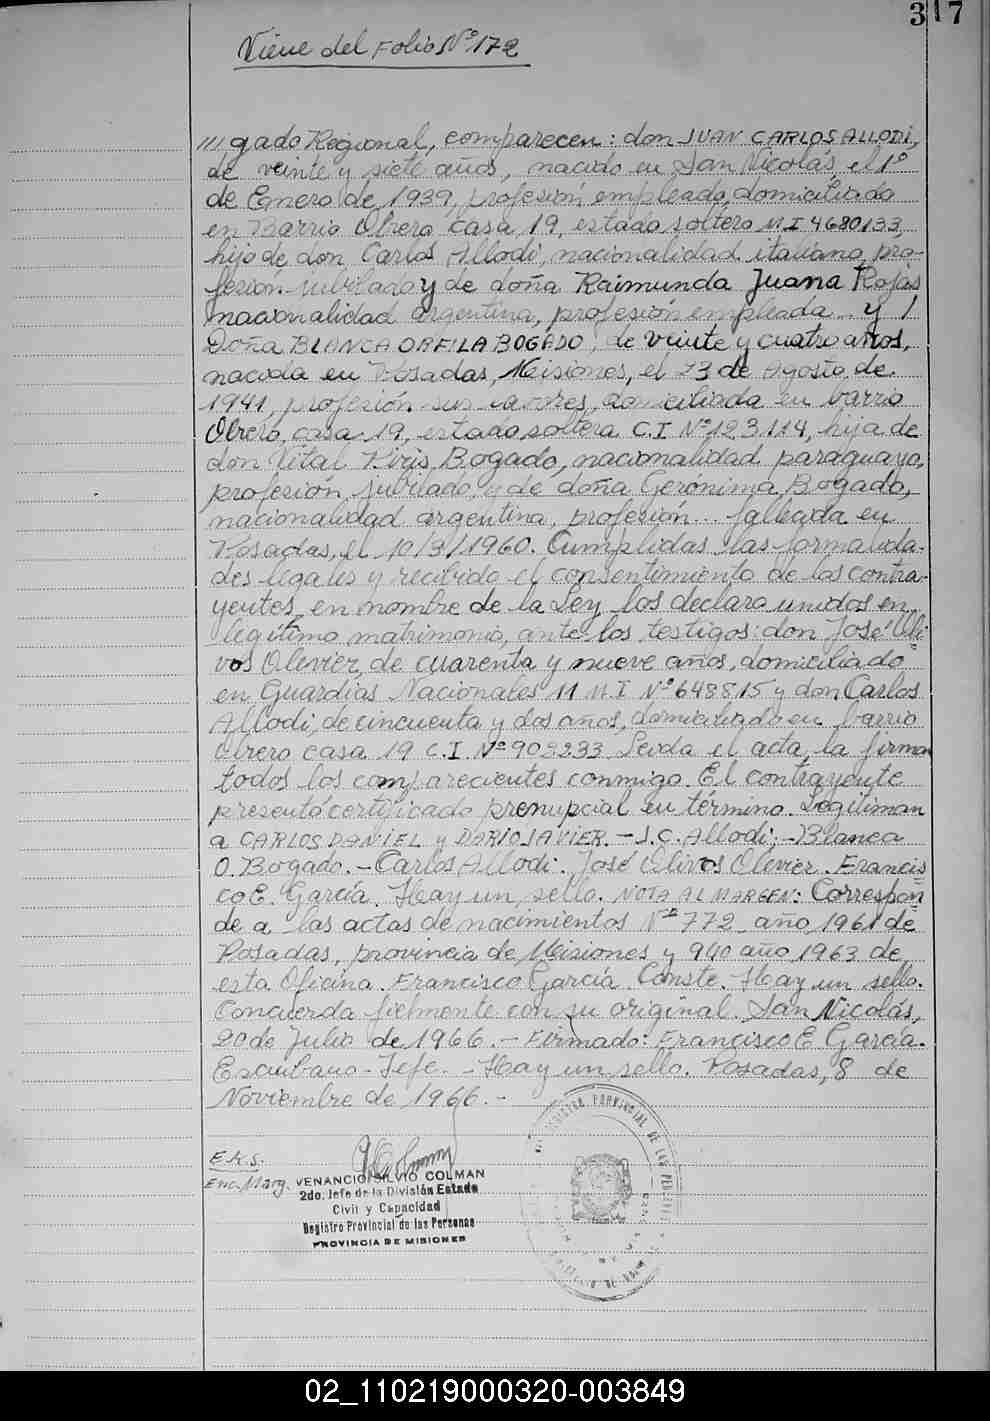 317
Viene del Folio Nº 172
///gado Regional, comparecen: don JUAN CARLOS ALLODI,
de veinte y siete años, nacido en San Nicolás, el 1º
de Enero de 1939, profesión empleado, domiciliado
en Barrio Obrero Casa 19, estado soltero M.I 4680133,
hijo de don Carlos Allodi, nacionalidad italiana, pro-
fesión jubilado y de doña Raimunda Juana Rojas
nacionalidad argentina, profesión empleada... y /
Doña BLANCA ORFILA BOGADO, de veinte y cuatro años,
nacida en Posadas, Misiones, el 23 de Agosto de
1941, profesión sus labores, domiciliada en barrio
Obrero, casa 19, estado soltera C.I Nº 123.114, hija de
don Vital Piris Bogado, nacionalidad paraguayo,
profesión jubilado y de doña Gerónima Bogado,
nacionalidad argentina, profesión... fallecida en
Posadas, el 10/3/1960. Cumplidas las formalida-
des legales y recibido el consentimiento de los contra-
yentes, en nombre de la Ley, los declaro unidos en
legítimo matrimonio, ante los testigos: don José Oli
vos Olevier, de cuarenta y nueve años, domiciliado
en Guardias Nacionales 11 M.I Nº 648815 y don Carlos
Allodi, de cincuenta y dos años, domiciliado en barrio
Obrero casa 19 C.I. Nº 903233 Leida el acta, la firman
todos los comparecientes conmigo. El contrayente
presentó certificado prenupcial en término. Legitiman
a CARLOS DANIEL y DARIO JAVIER. - J.C. Allodi. - Blanca
O. Bogado. - Carlos Allodi. José Olivos Olevier. Francis
co E. García. Hay un sello. NOTA AL MARGEN: Correspon
de a las actas de nacimientos Nº 772 año 1961 de
Posadas, provincia de Misiones y 940 año 1963 de
esta Oficina. Francisco García. Conste. Hay un sello.
Concuerda fielmente con su original. San Nicolás,
20 de Julio de 1966. - Firmado: Francisco E García.
Escribano - Jefe. - Hay un sello. Posadas, 8 de
Noviembre de 1966. -
E.K.S.
Enc. Marg.
VENANCIO SILVIO COLMAN
2do. Jefe de la División Estado
Civil y Capacidad
Registro Provincial de las Personas
PROVINCIA DE MISIONES
REGISTRO PROVINCIAL DE LAS PERSONAS
02_110219000320-003849